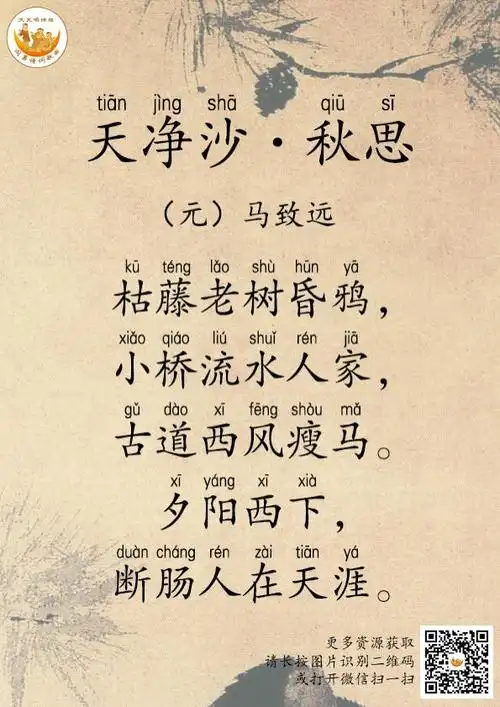 tiān jìng shā qiū sī
天净沙·秋思
（元）马致远
kū téng lǎo shù hūn yā
枯藤老树昏鸦，
xiǎo qiáo liú shuǐ rén jiā
小桥流水人家，
gǔ dào xī fēng shòu mǎ
古道西风瘦马。
xī yáng xī xià
夕阳西下，
duàn cháng rén zài tiān yá
断肠人在天涯。
更多资源获取
请长按图片识别二维码
或打开微信扫一扫